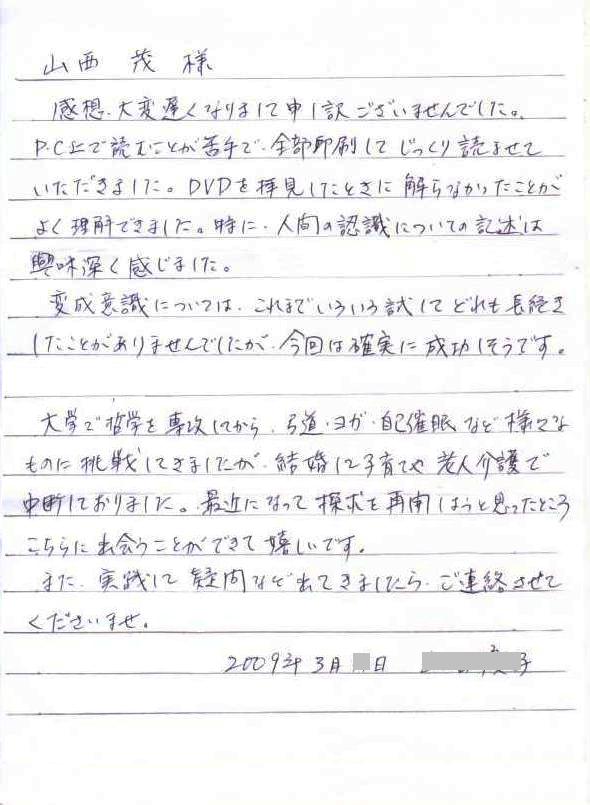 山西 茂 様
感想、大変遅くなりまして申し訳ございませんでした。
P.C上で読むことが苦手で、全部印刷してじっくり読ませて
いただきました。DVDを拝見したときに解らなかったことが
よく理解できました。特に、人間の認識についての記述は
興味深く感じました。
変成意識については、これまでいろいろ試してどれも長続き
したことがありませんでしたが、今回は確実に成功しそうです。
大学で哲学を専攻してから、弓道・ヨガ・自己催眠など様々な
ものに挑戦してきましたが、結婚して子育てや老人介護で
中断しておりました。最近になって探求を再開しようと思ったところ
こちらに出会うことができて嬉しいです。
また、実践して疑問など出てきましたら、ご連絡させて
くださいませ。
2009年3月 日 子